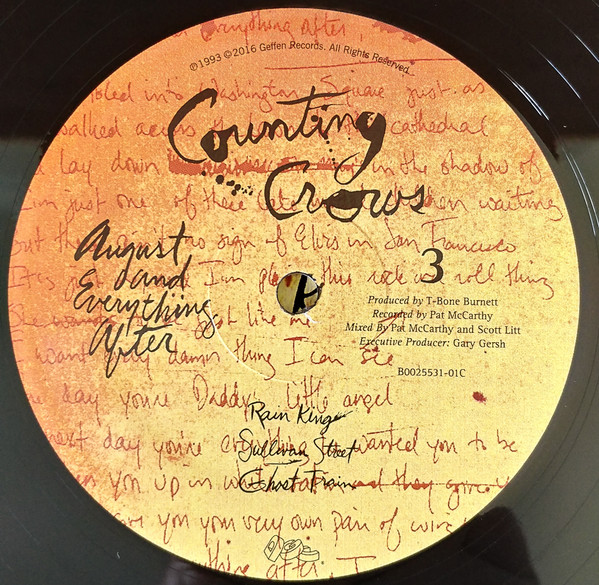 everything after,
℗1993 ©2016 Geffen Records. All Rights Reserved.
into Washington Square just as
walked across the cathedral
lay down in the shadow of
I'm just one of these waiting
but there no sign of Elvis in San Francisco
this rock roll thing
just like me
I want every damn thing I can see
day you're Daddy's little angel
next day you're everything wanted you to be
you up in and they give
you your very own pair of
everything after, I
Counting
Crows
August
and
Everything
After
3
Produced by T-Bone Burnett
Recorded by Pat McCarthy
Mixed By Pat McCarthy and Scott Litt
Executive Producer: Gary Gersh
B0025531-01C
Rain King
Sullivan Street
Ghost Train